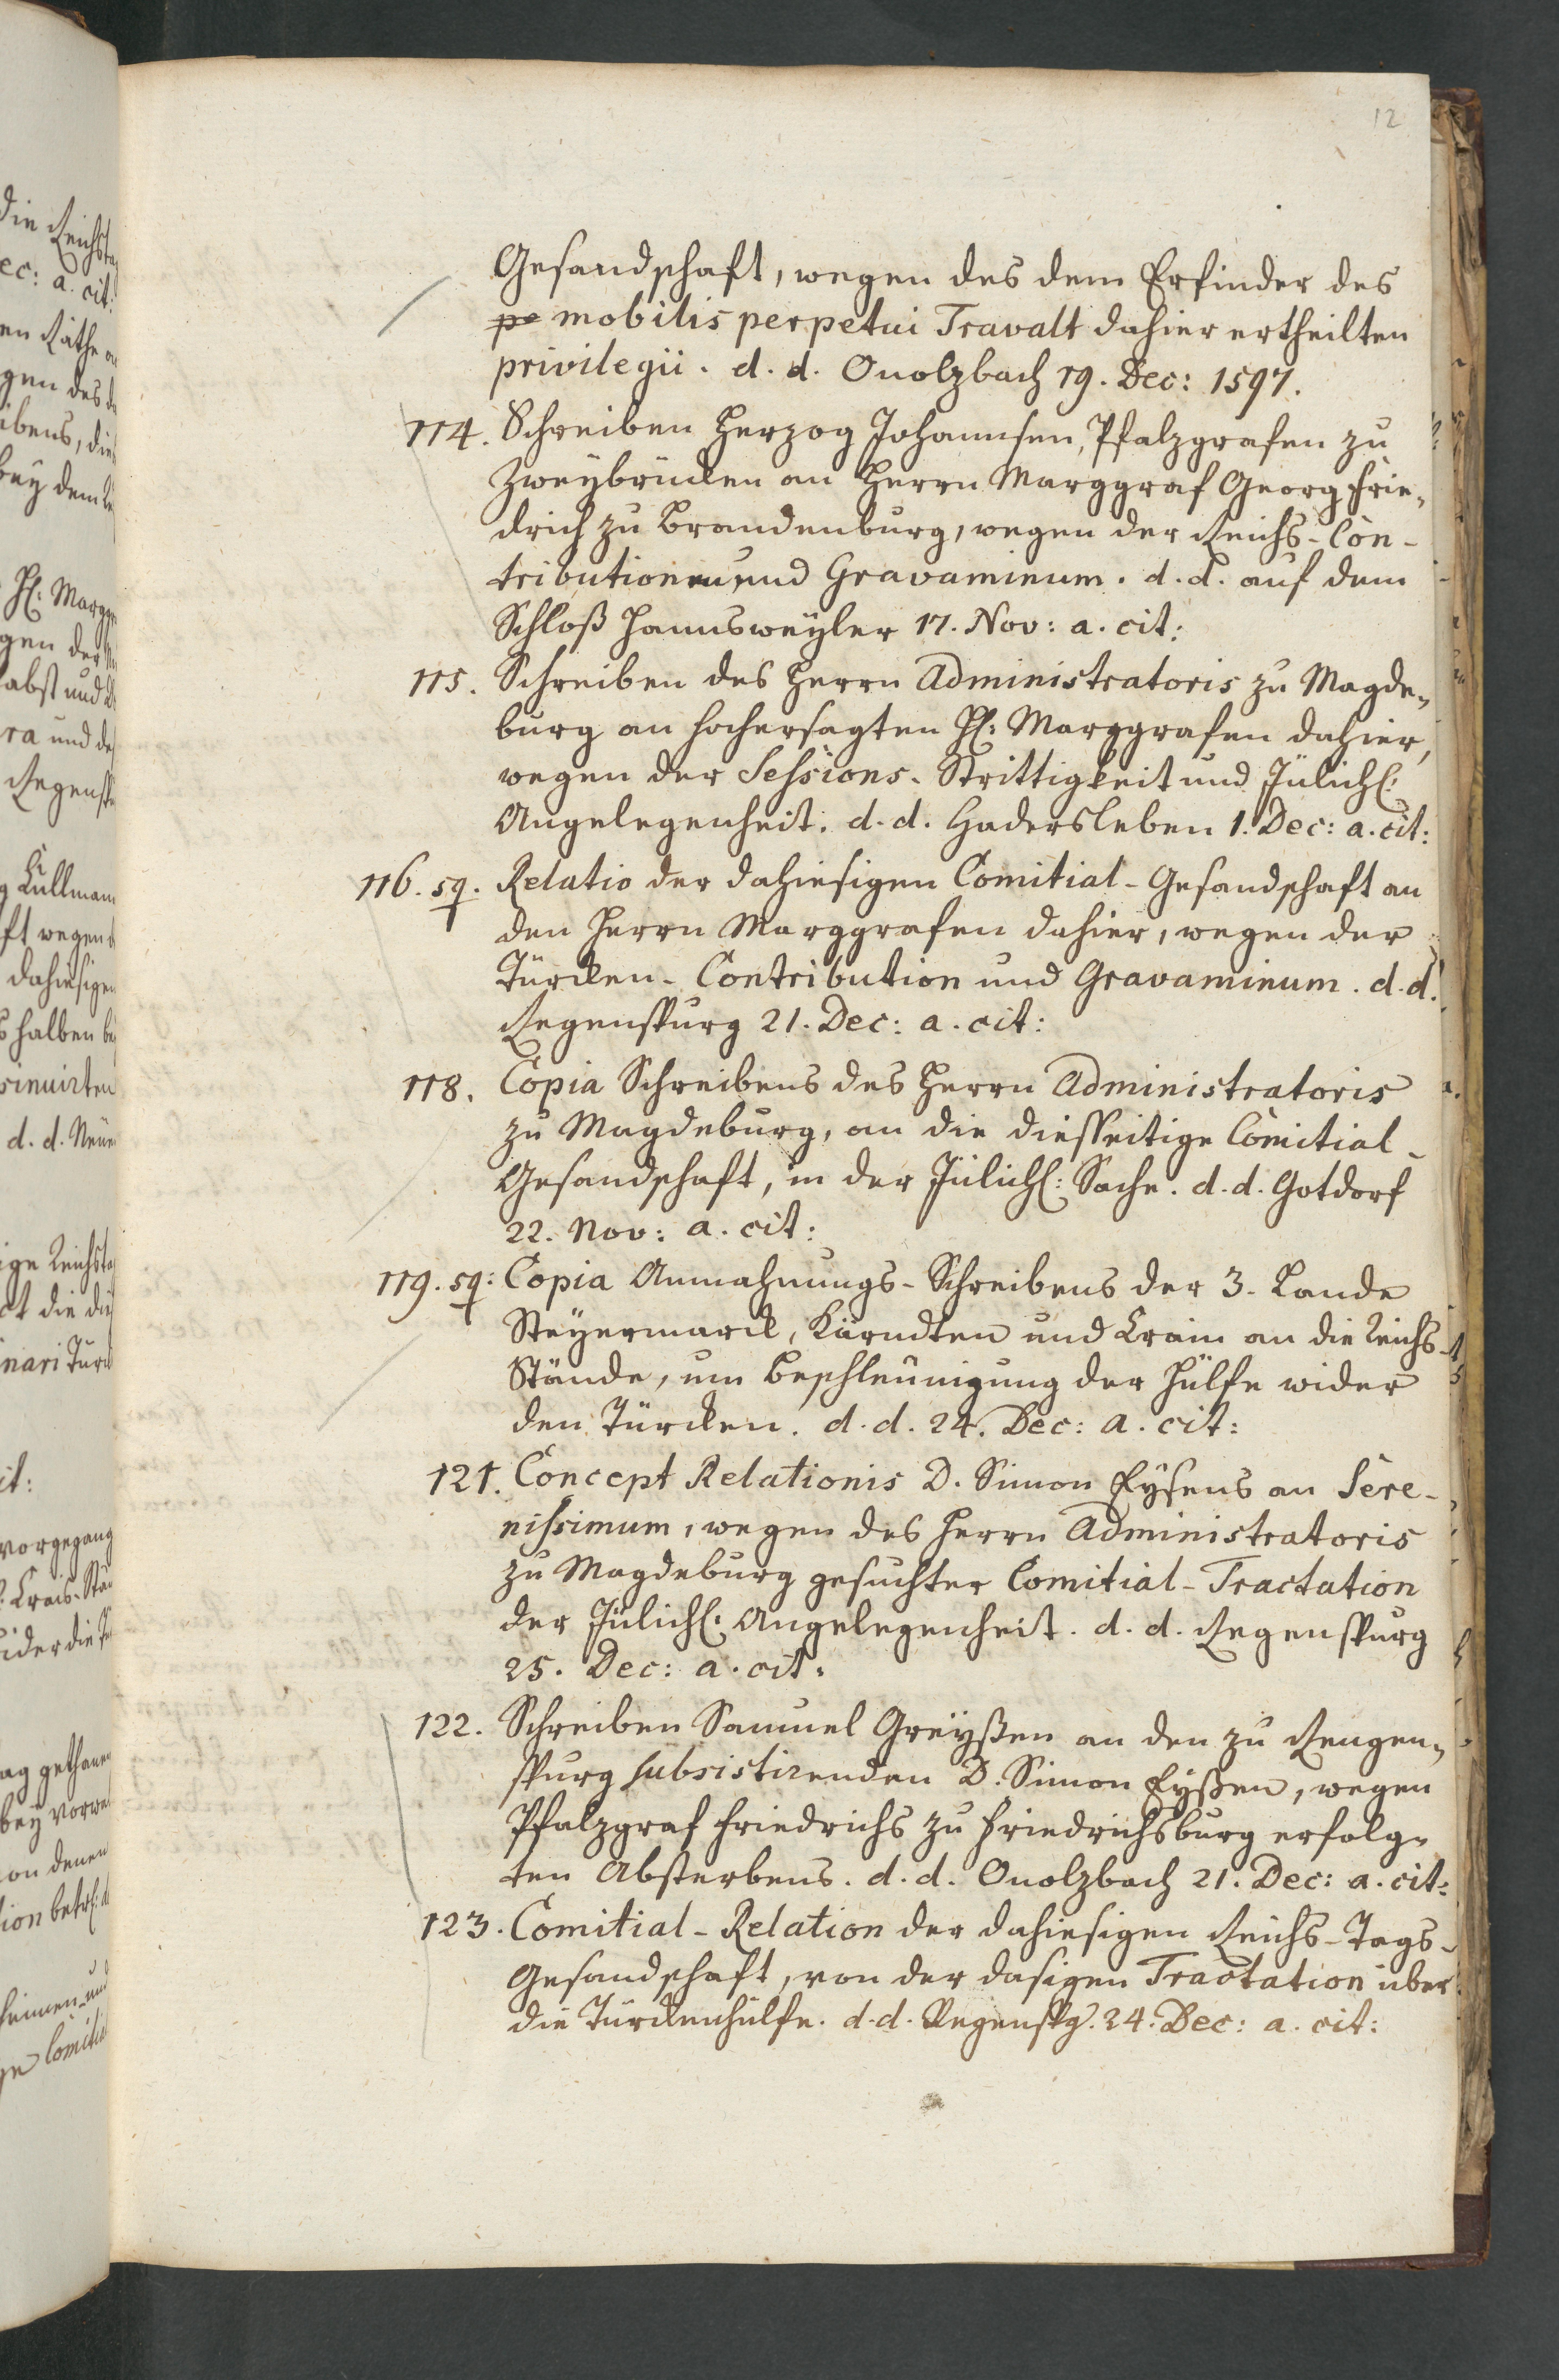 12
Gesandschaft, wegen des dem Erfinder des
pe mobilis perpetui Travalt dahier ertheilten
privilegii. d. d. Onolzbach 19. Dec: 1597.
114. Schreiben Herzog Johannsen, Pfalzgrafen zu
Zweybrücken an Herrn Marggraf Georg Frie-
drich zu Brandenburg, wegen der Reichs-Con-
tributionen und Gravaminum. d. d. auf dem
Schloß Hannsweyler 17. Nov: a. cit:
115. Schreiben des Herrn Administratoris zu Magde-
burg an hochersagten H: Marggrafen dahier,
wegen der Sessions-Strittigkeit und Jülich:
Angelegenheit. d. d. Hadersleben 1. Dec: a. cit:
116. sq. Relatio der dahiesigen Comitial-Gesandschaft an
den Herrn Marggrafen dahier, wegen der
Türcken-Contribution und Gravaminum. d. d.
Regenspurg 21. Dec: a. cit:
118. Copia Schreibens des Herrn Administratoris
zu Magdeburg, an die diesseitige Comitial-
Gesandschaft, in der Jülich: Sache. d. d. Gotdorf
22. Nov: a. cit:
119. sq: Copia Anmahnungs-Schreibens der 3. Lande
Steyermarck, Kärndten und Crain an die Reichs-
Stände, um Beschleunigung der Hülfe wider
den Türcken. d. d. 24. Dec: a. cit:
121. Concept Relationis D. Simon Eysens an Sere-
nissimum, wegen des Herrn Administratoris
zu Magdeburg gesuchter Comitial-Tractation
der Jülich: Angelegenheit. d. d. Regenspurg
25. Dec: a. cit:
122. Schreiben Samuel Greyßen an den zu Rengen-
spurg subsistirenden D. Simon Eyßen, wegen
Pfalzgraf Friedrichs zu Friedrichsburg erfolg-
ten Absterbens. d. d. Onolzbach 21. Dec: a. cit:
123. Comitial-Relation der dahiesigen Reichs-Tags-
Gesandschaft, von der dasigen Tractation über
die Türckenhülfe. d. d. Regenspg. 24. Dec: a. cit: